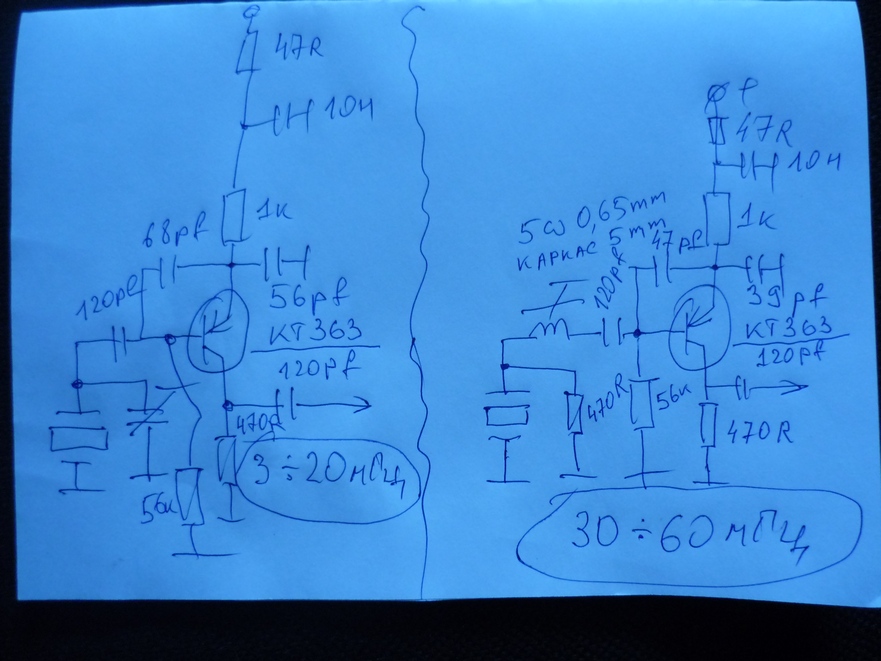 47R
10н
1к
68pf
120pf
56pf
КТ363
120pf
470R
3÷20мГц
56к
+
47R
10н
1к
5ω 0,65mm
КАРКАС 5mm
47pf
120pf
39pf
КТ363
120pf
470R
56к
470R
30÷60мГц